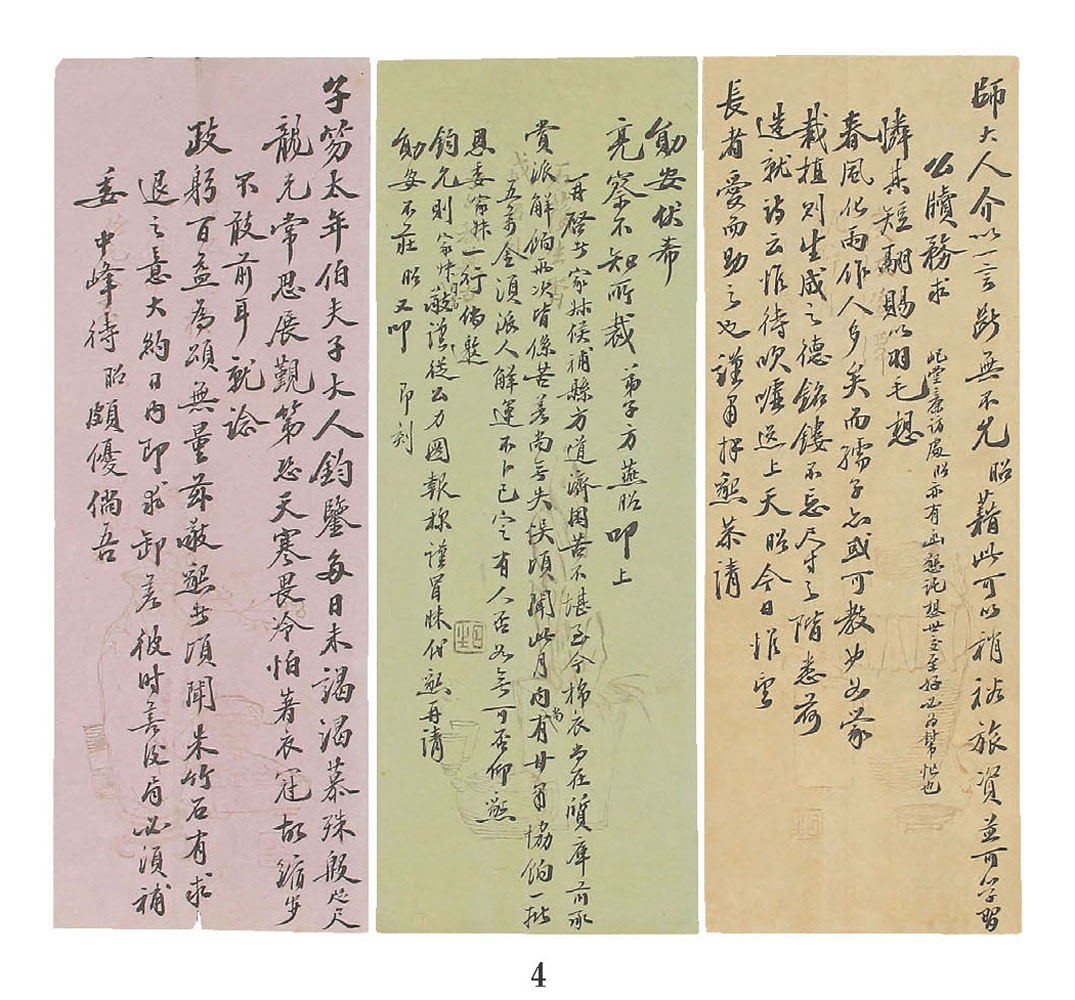 師大人介以一言斷無不允昭藉此可以稍裕旅資並可學習
公牘務求
憐其短翮賜以羽毛想
春風化雨作人多矣而孺子亦或可教也如蒙
栽植則生成之德銘鏤不忘尺寸之階悉荷
造就詩云惟待吹噓送上天昭今日惟望
長者愛而助之也謹肅拜懇恭請
勛安伏希
亮察不知所裁 弟子方燕昭叩上
再啓者家妹侯補縣方道濟困苦不堪至今棉衣尚在質庫前承
賞派解餉兩次皆係苦差尚無失誤頃聞此月內尚有甘肅協餉一批
五萬金須派人解運不卜已定有人否如無可否仰懇
恩委家妹一行倘懇
鈞允則家妹敬謹從公力圖報稱謹冒昧代懇再請
勛安不莊昭又叩 即刻
子笏太年伯夫子大人鈞鑒多日未謁渴慕殊殷咫尺
龍光常思展覲第恐天寒畏冷怕著衣冠故縮步
不敢前耳就諗
政躬百益為頌無量茲敬懇者頃聞朱竹石有求
退之意大約日內即求卸差彼時善後局必須補
委 中峰待昭頗優倘吾
4